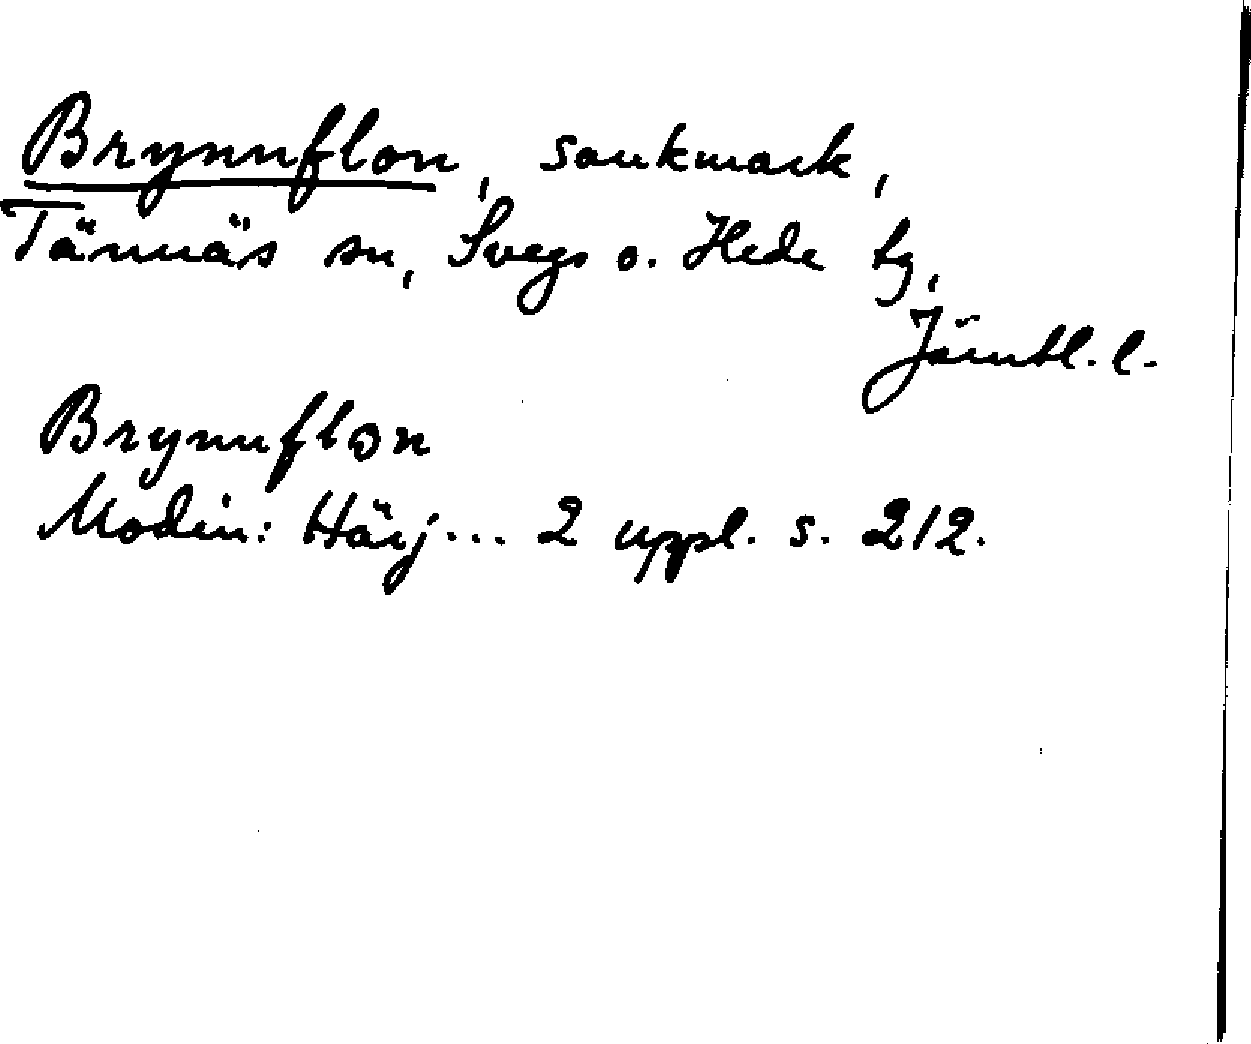 Brynnflon, sankmark,
Tännäs sn, Svegs o. Hede tg,
Jämtl. l.
Brynnflon
Modin: Härj... 2 uppl. s. 212.